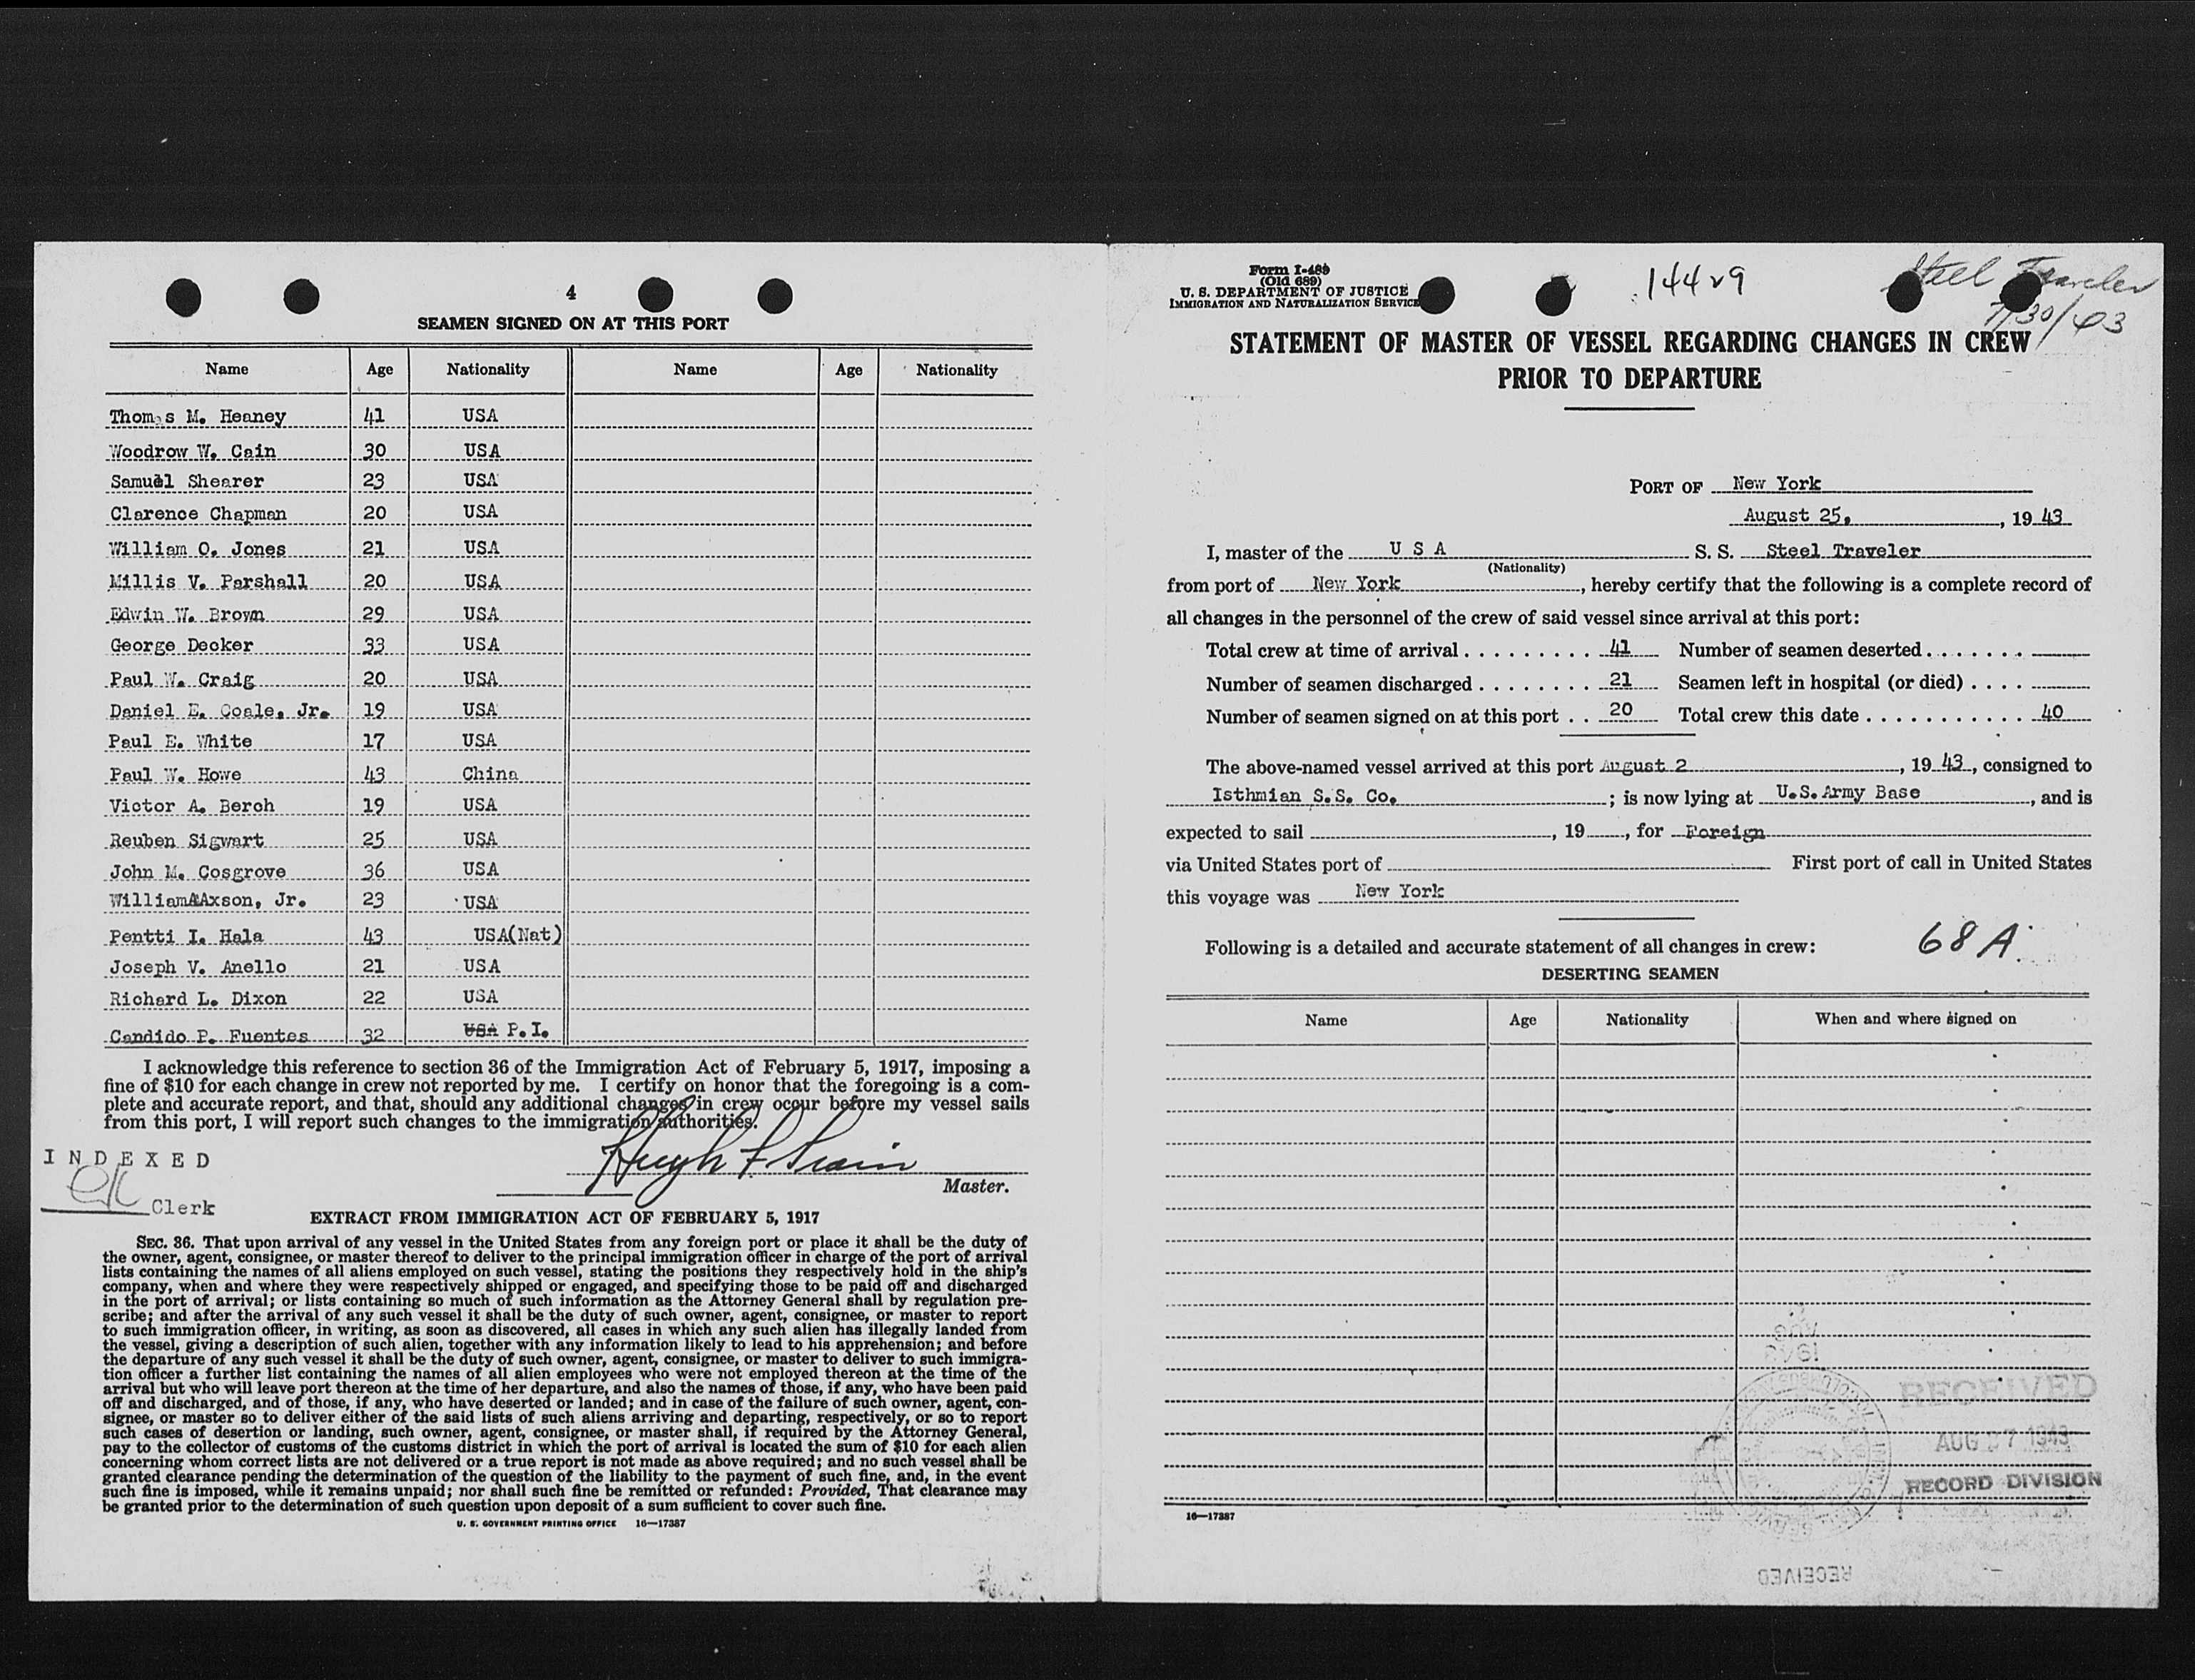 4
SEAMEN SIGNED ON AT THIS PORT
Name Age Nationality Name Age Nationality
Thomas M. Heaney 41 USA
Woodrow W. Cain 30 USA
Samuel Shearer 23 USA
Clarence Chapman 20 USA
William O. Jones 21 USA
Millis V. Parshall 20 USA
Edwin W. Brown 29 USA
George Decker 33 USA
Paul W. Craig 20 USA
Daniel E. Coale, Jr. 19 USA
Paul E. White 17 USA
Paul W. Howe 43 China
Victor A. Berch 19 USA
Reuben Sigwart 25 USA
John M. Cosgrove 36 USA
William Axson, Jr. 23 USA
Pentti I. Hala 43 USA(Nat)
Joseph V. Anello 21 USA
Richard L. Dixon 22 USA
Candido P. Fuentes 32 USA P.I.
I acknowledge this reference to section 36 of the Immigration Act of February 5, 1917, imposing a
fine of $10 for each change in crew not reported by me. I certify on honor that the foregoing is a com-
plete and accurate report, and that, should any additional changes in crew occur before my vessel sails
from this port, I will report such changes to the immigration authorities.
INDEXED
Clerk
Hugh F
Master.
EXTRACT FROM IMMIGRATION ACT OF FEBRUARY 5, 1917
SEC. 36. That upon arrival of any vessel in the United States from any foreign port or place it shall be the duty of
the owner, agent, consignee, or master thereof to deliver to the principal immigration officer in charge of the port of arrival
lists containing the names of all aliens employed on such vessel, stating the positions they respectively hold in the ship's
company, when and where they were respectively shipped or engaged, and specifying those to be paid off and discharged
in the port of arrival; or lists containing so much of such information as the Attorney General shall by regulation pre-
scribe; and after the arrival of any such vessel it shall be the duty of such owner, agent, consignee, or master to report
to such immigration officer, in writing, as soon as discovered, all cases in which any such alien has illegally landed from
the vessel, giving a description of such alien, together with any information likely to lead to his apprehension; and before
the departure of any such vessel it shall be the duty of such owner, agent, consignee, or master to deliver to such immigra-
tion officer a further list containing the names of all alien employees who were not employed thereon at the time of the
arrival but who will leave port thereon at the time of her departure, and also the names of those, if any, who have been paid
off and discharged, and of those, if any, who have deserted or landed; and in case of the failure of such owner, agent, con-
signee, or master so to deliver either of the said lists of such aliens arriving and departing, respectively, or so to report
such cases of desertion or landing, such owner, agent, consignee, or master shall, if required by the Attorney General,
pay to the collector of customs of the customs district in which the port of arrival is located the sum of $10 for each alien
concerning whom correct lists are not delivered or a true report is not made as above required; and no such vessel shall be
granted clearance pending the determination of the question of the liability to the payment of such fine, and, in the event
such fine is imposed, while it remains unpaid; nor shall such fine be remitted or refunded: Provided, That clearance may
be granted prior to the determination of such question upon deposit of a sum sufficient to cover such fine.
U. S. GOVERNMENT PRINTING OFFICE 16—17387
Form I-489
(Old 689)
U. S. DEPARTMENT OF JUSTICE
IMMIGRATION AND NATURALIZATION SERVICE
14429
Steel Traveler
7/30/43
STATEMENT OF MASTER OF VESSEL REGARDING CHANGES IN CREW
PRIOR TO DEPARTURE
PORT OF New York
August 25, , 19 43
I, master of the U S A S. S. Steel Traveler
(Nationality)
from port of New York , hereby certify that the following is a complete record of
all changes in the personnel of the crew of said vessel since arrival at this port:
Total crew at time of arrival . . . . . . . . . 41 Number of seamen deserted . . . . . . .
Number of seamen discharged . . . . . . . . 21 Seamen left in hospital (or died) . . . .
Number of seamen signed on at this port . . 20 Total crew this date . . . . . . . . . . . . 40
The above-named vessel arrived at this port August 2 , 19 43 , consigned to
Isthmian S.S. Co. ; is now lying at U.S. Army Base , and is
expected to sail , 19 , for Foreign
via United States port of First port of call in United States
this voyage was New York
Following is a detailed and accurate statement of all changes in crew:
68A
DESERTING SEAMEN
Name Age Nationality When and where signed on
RECEIVED
AUG 27 1943
RECORD DIVISION
16—17387
RECEIVED